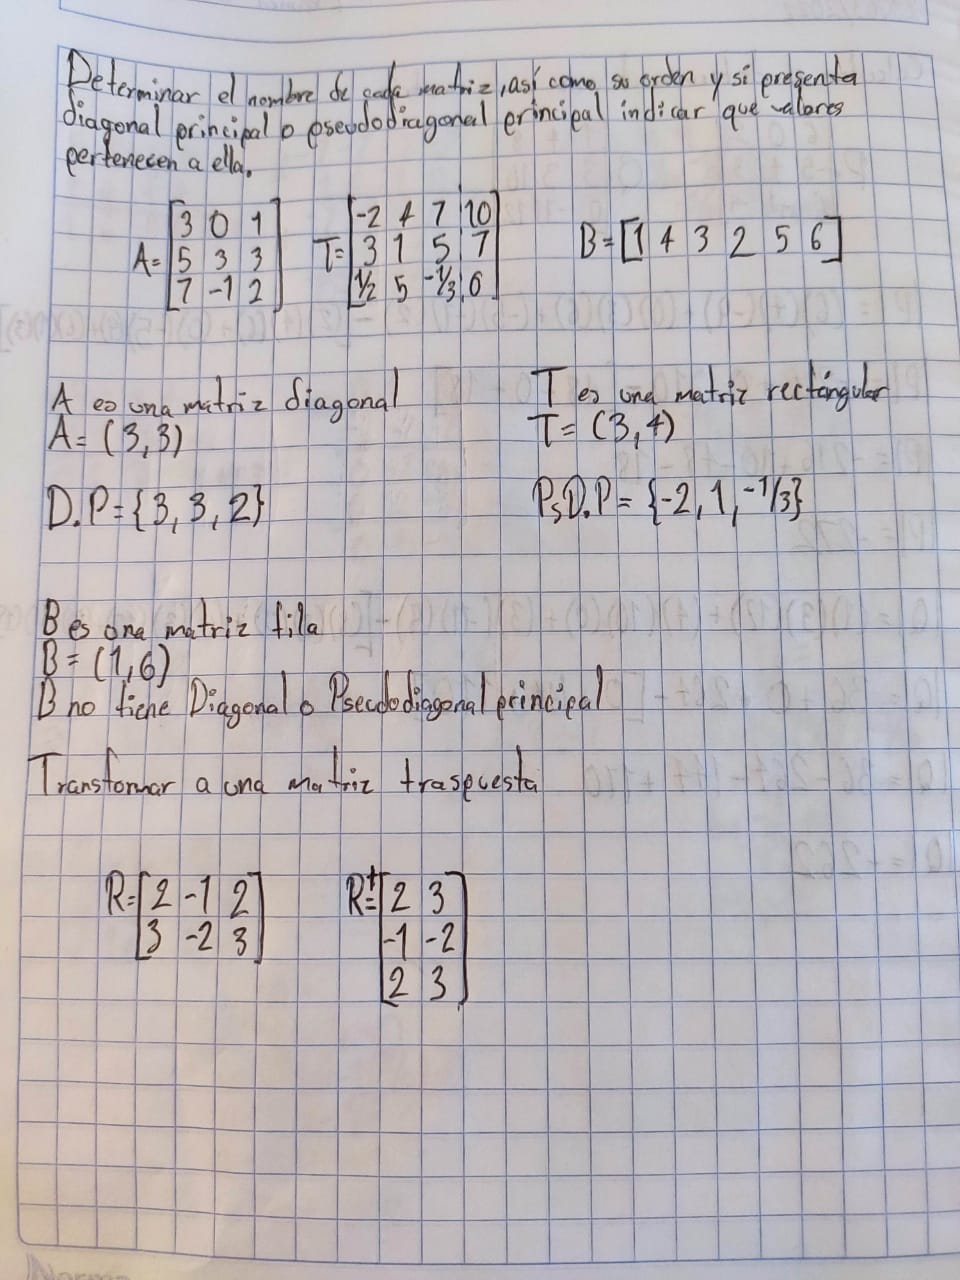 Determinar el nombre de cada matriz, así como su orden y si presenta
diagonal principal o pseudodiagonal principal indicar que valores
pertenecen a ella.
A= [3 0 1 T= [-2 4 7 10 B= [1 4 3 2 5 6]
5 3 3 3 1 5 7
7 -1 2] 1/2 5 -1/3 6]
A es una matriz diagonal
A= (3,3)
D.P= {3, 3, 2}
T es una matriz rectángular
T= (3,4)
PsD.P= {-2, 1, -1/3}
B es una matriz fila
B= (1,6)
B no tiene Diagonal o Pseudodiagonal principal
Transformar a una matriz traspuesta
R= [2 -1 2 Rt= [2 3
3 -2 3] -1 -2
2 3]